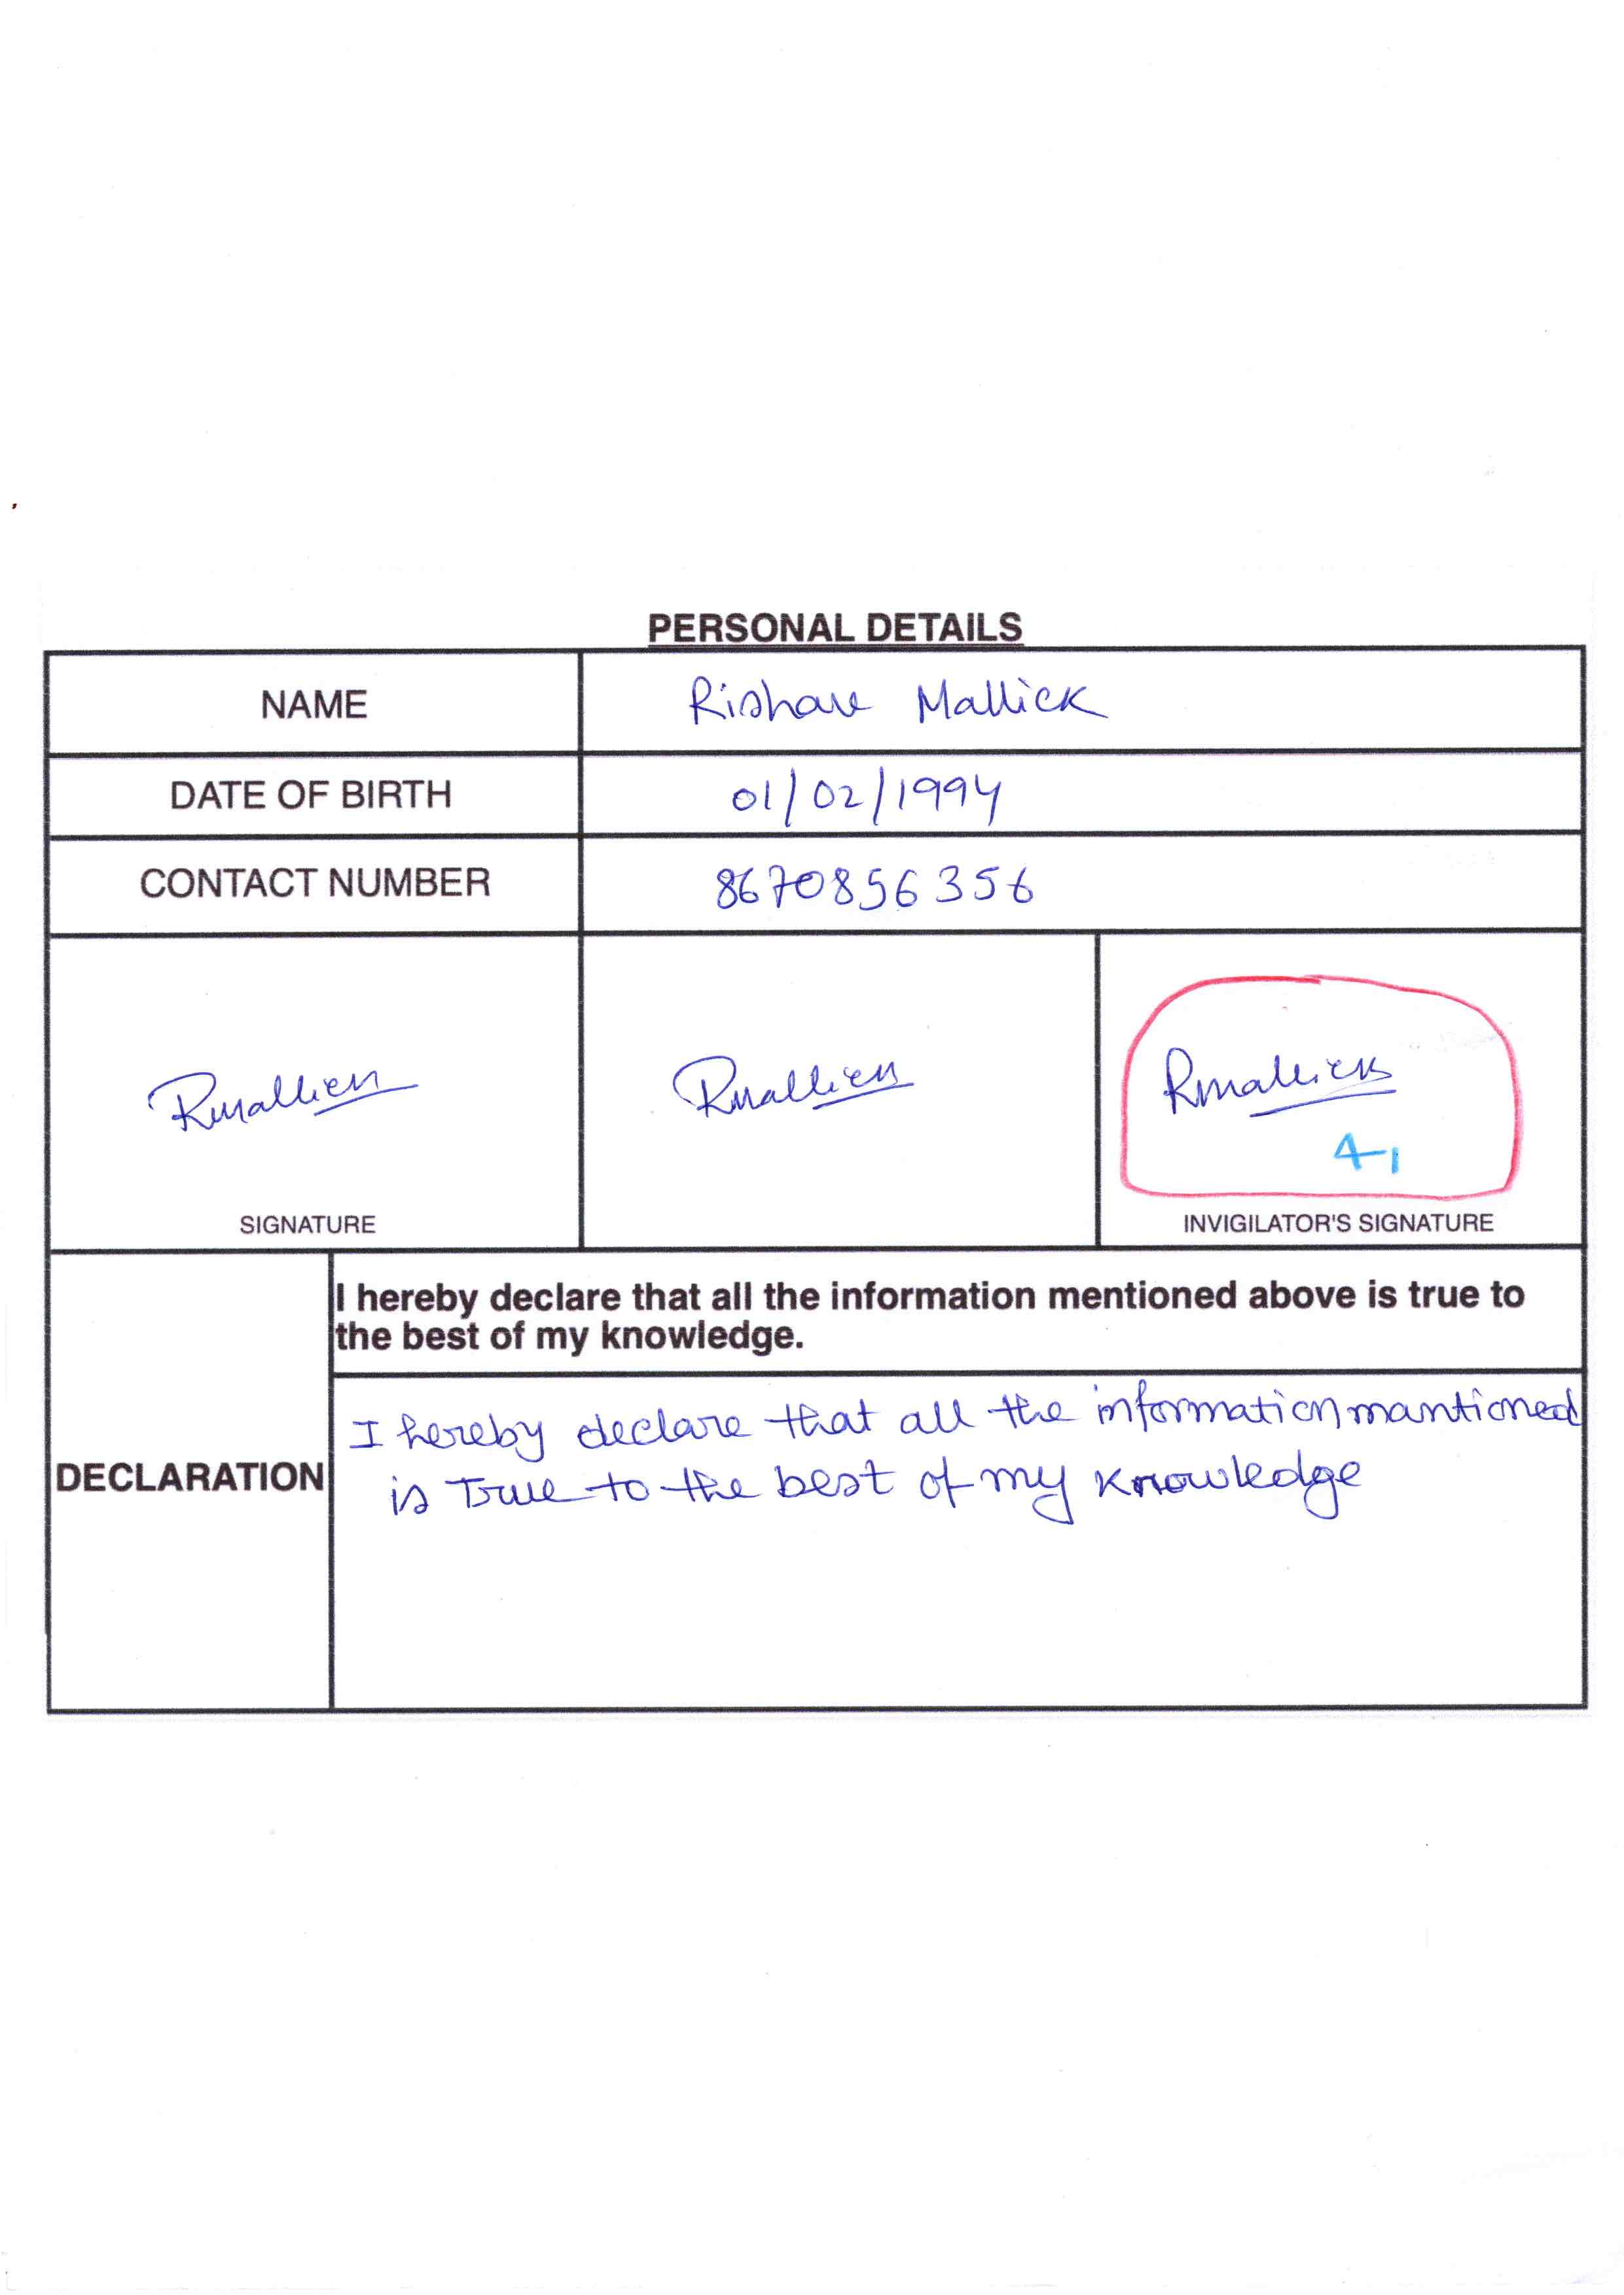 PERSONAL DETAILS
NAME Rishave Mallick
DATE OF BIRTH 01/02/1994
CONTACT NUMBER 8670856356
Rmallick Rmallick Rmallick
41
SIGNATURE INVIGILATOR'S SIGNATURE
I hereby declare that all the information mentioned above is true to
the best of my knowledge.
I hereby declare that all the information mantioned
DECLARATION is True to the best of my knowledge